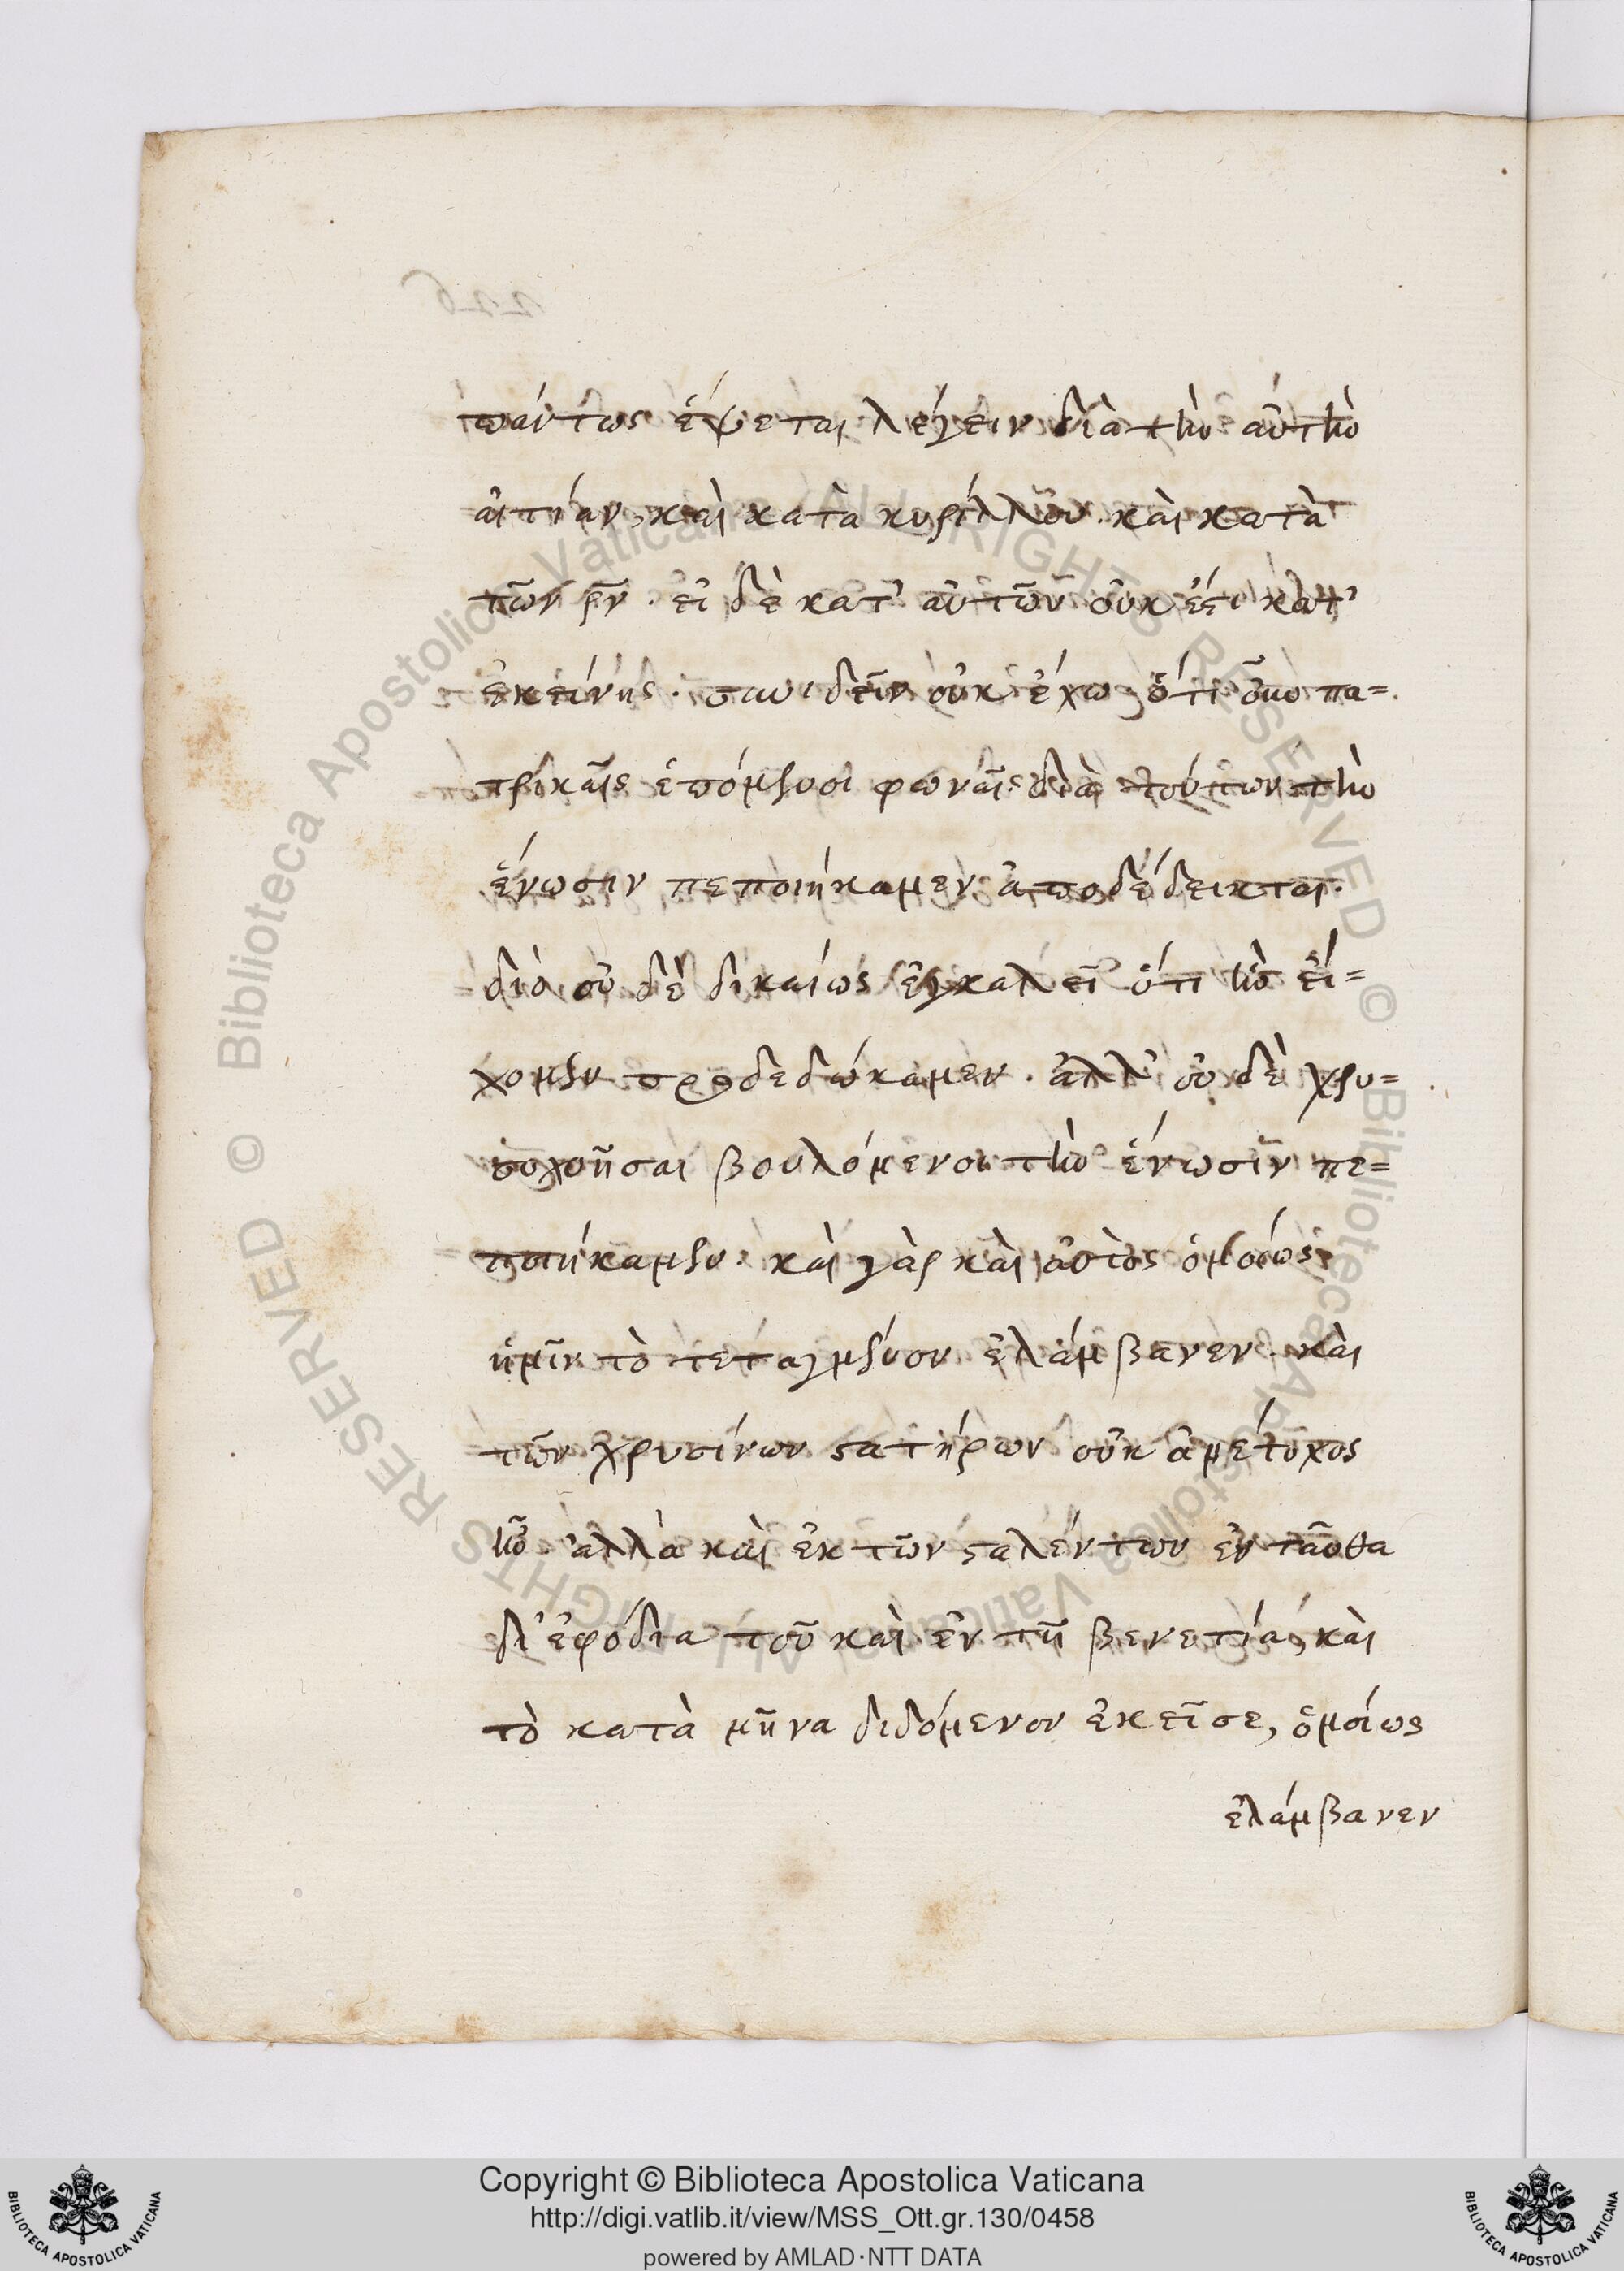 πάντως ἕψεται λέγειν διὰ τὴν αὐτὴν
αἰτίαν, καὶ κατὰ κυρίλλου. καὶ κατὰ
τῶν ρ̅ν̅. εἰ δὲ κατ' αὐτῶν οὐκ ἔστι κατ'
ἐκείνης. συνιδεῖν οὐκ ἔχω, ὅτι πα=
τρικαῖς ἑπόμενοι φωναῖς διὰ τούτων τὴν
ἕνωσιν πεποιήκαμεν ἀποδέδεικται.
διὸ οὐδὲ δικαίως ἐγκαλεῖ ὅτι ἣν εἴ=
χομεν προδεδώκαμεν. ἀλλ' οὐδὲ χρυ=
σοχοῆσαι βουλόμενοι τὴν ἕνωσιν πε=
ποιήκαμεν. καὶ γὰρ καὶ αὐτὸς ὁμοίως
ἡμῖν τὸ τεταγμένον ἐλάμβανεν. καὶ
τῶν χρυσίνων στατήρων οὐκ ἀμέτοχος
ἦν. ἀλλὰ καὶ ἐκ τῶν σταλέντων ἐνταῦθα
δι' ἐφόδια τοῦ καὶ ἐν τῇ βενετίᾳ, καὶ
τὸ κατὰ μῆνα διδόμενον ἐκεῖσε, ὁμοίως
ἐλάμβανεν
Copyright © Biblioteca Apostolica Vaticana
http://digi.vatlib.it/view/MSS_Ott.gr.130/0458
powered by AMLAD·NTT DATA
BIBLIOTECA APOSTOLICA VATICANA
BIBLIOTECA APOSTOLICA VATICANA
© Biblioteca Apostolica Vaticana ALL RIGHTS RESERVED © Biblioteca Apostolica Vaticana ALL RIGHTS RESERVED